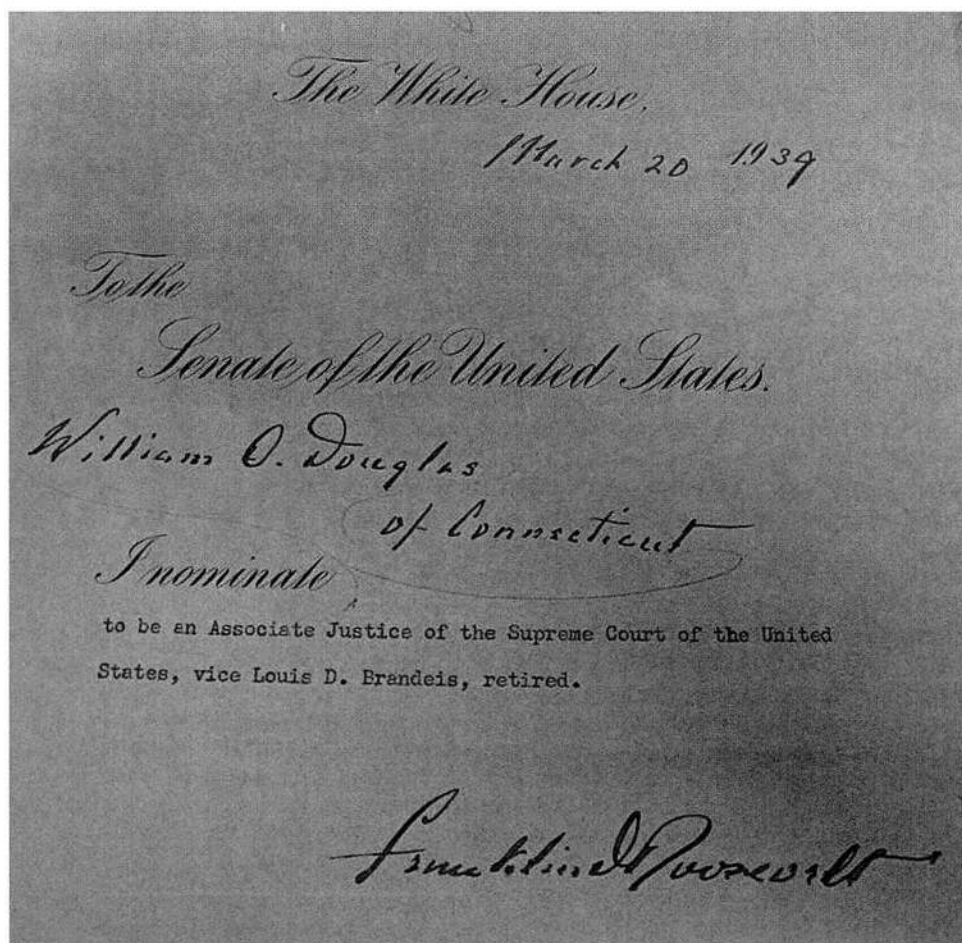 The White House,
March 20 1939
To the
Senate of the United States.
William O. Douglas
of Connecticut
I nominate
to be an Associate Justice of the Supreme Court of the United
States, vice Louis D. Brandeis, retired.
Franklin D Roosevelt